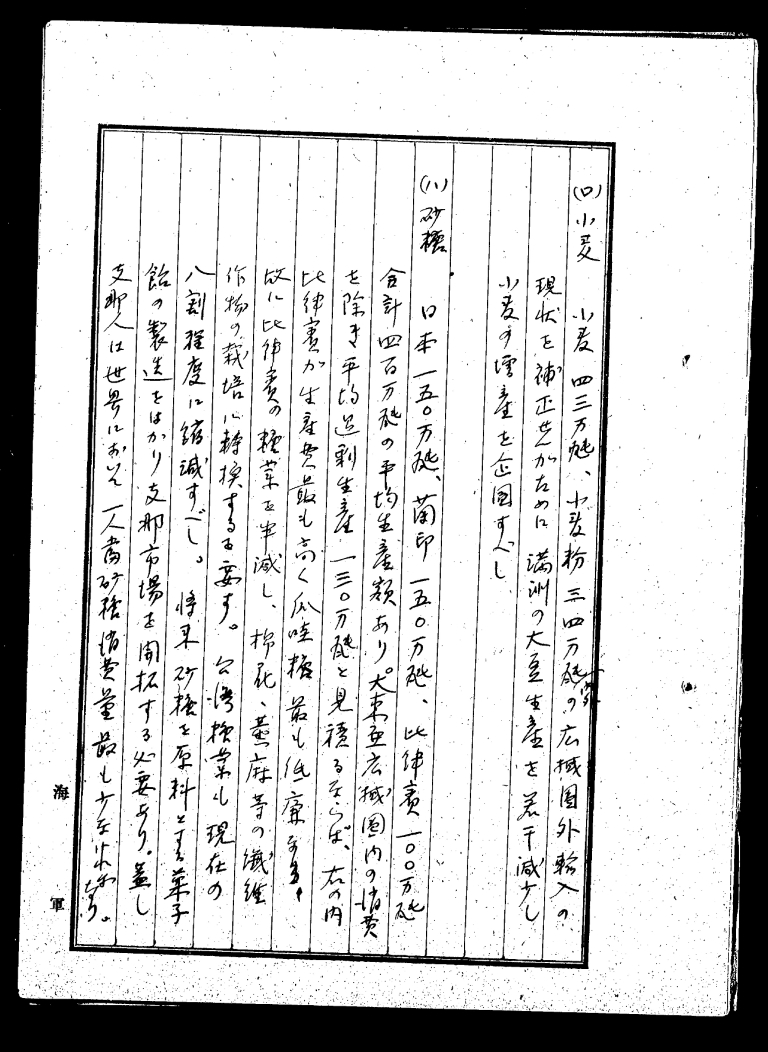 (ロ)小麦　小麦四三万瓲、小麦粉三四万瓲の広域圏外輸入の
現状を補正せんがために満洲の大豆生産を若干減少し
小麦の増産を企図すべし
(ハ)砂糖　日本一五〇万瓲、蘭印一五〇万瓲、比律賓一〇〇万瓲
合計四百万瓲の平均生産額あり。大東亜広域圏内の消費
を除き平均過剰生産一三〇万瓲と見積るならば、右の内
比律賓が生産費最も高く爪哇糖最も低廉なり。
故に比律賓の糖業を半減し、棉花、黄麻等の繊維
作物の栽培に転換するを要す。台湾糖業も現在の
八割程度に縮減すべし。将来砂糖を原料とする菓子
飴の製造をはかり支那市場を開拓する必要あり。蓋し
支那人は世界において一人当砂糖消費量最も少なければなり。
海軍